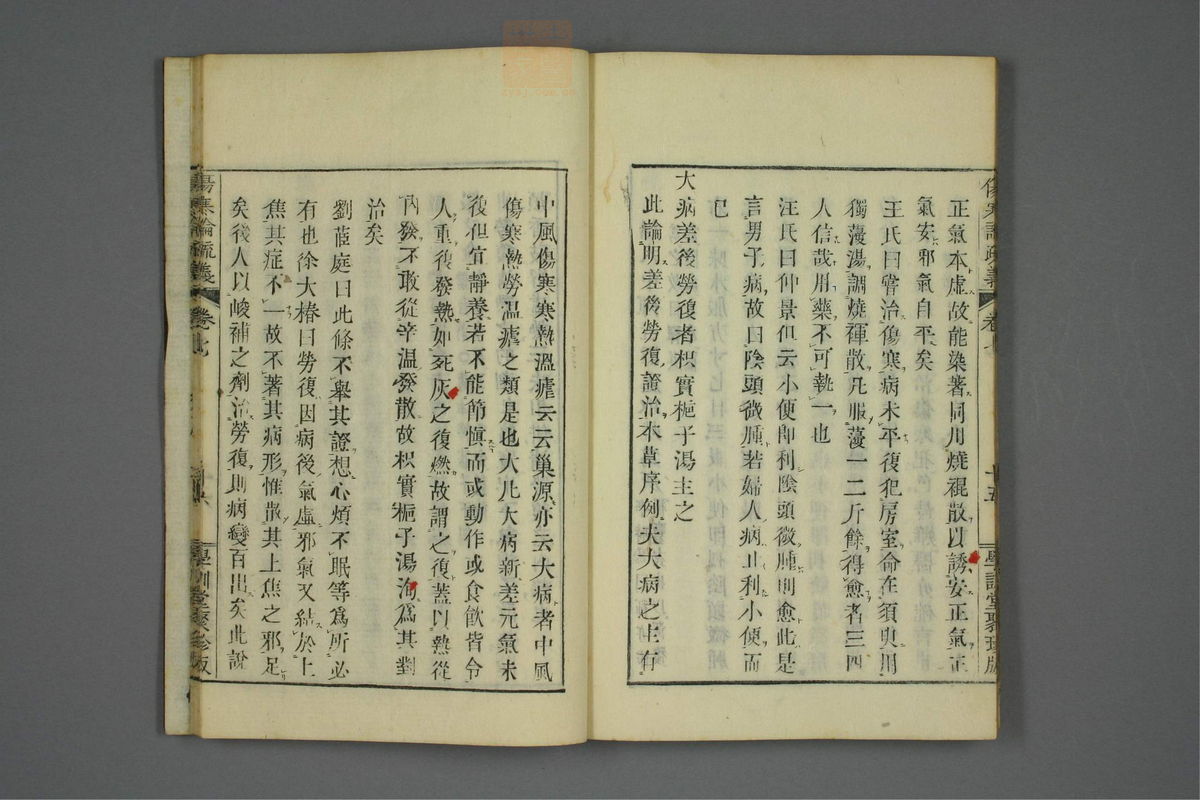 正氣本虛故能染著同用燒裩散以誘安正氣正
氣安邪氣自平矣
王氏曰嘗治傷寒病未平復犯房室命在須臾用
獨薓湯調燒裈散凡服薓一二斤餘得愈者三四
人信哉用藥不可執一也
汪氏曰仲景但云小便卽利陰頭微腫則愈此是
言男子病故曰陰頭微腫若婦人病止利小便而
已
大病差後勞復者枳實梔子湯主之
此論明差後勞復證治本草序例夫大病之主有
中風傷寒寒熱溫瘧云云巢源亦云大病者中風
傷寒熱勞溫瘧之類是也大凡大病新差元氣未
復但宜靜養若不能節愼而或動作或食飮皆令
人重復發熱如死灰之復燃故謂之復蓋以熱從
內發不敢從辛溫發散故枳實梔子湯洵爲其對
治矣
劉茝庭曰此條不舉其證想心煩不眠等爲所必
有也徐大椿曰勞復因病後氣虛邪氣又結於上
焦其症不一故不著其病形惟散其上焦之邪足
矣後人以峻補之劑治勞復則病變百出矣此說
傷寒論疏義
卷七
學訓堂聚珍版